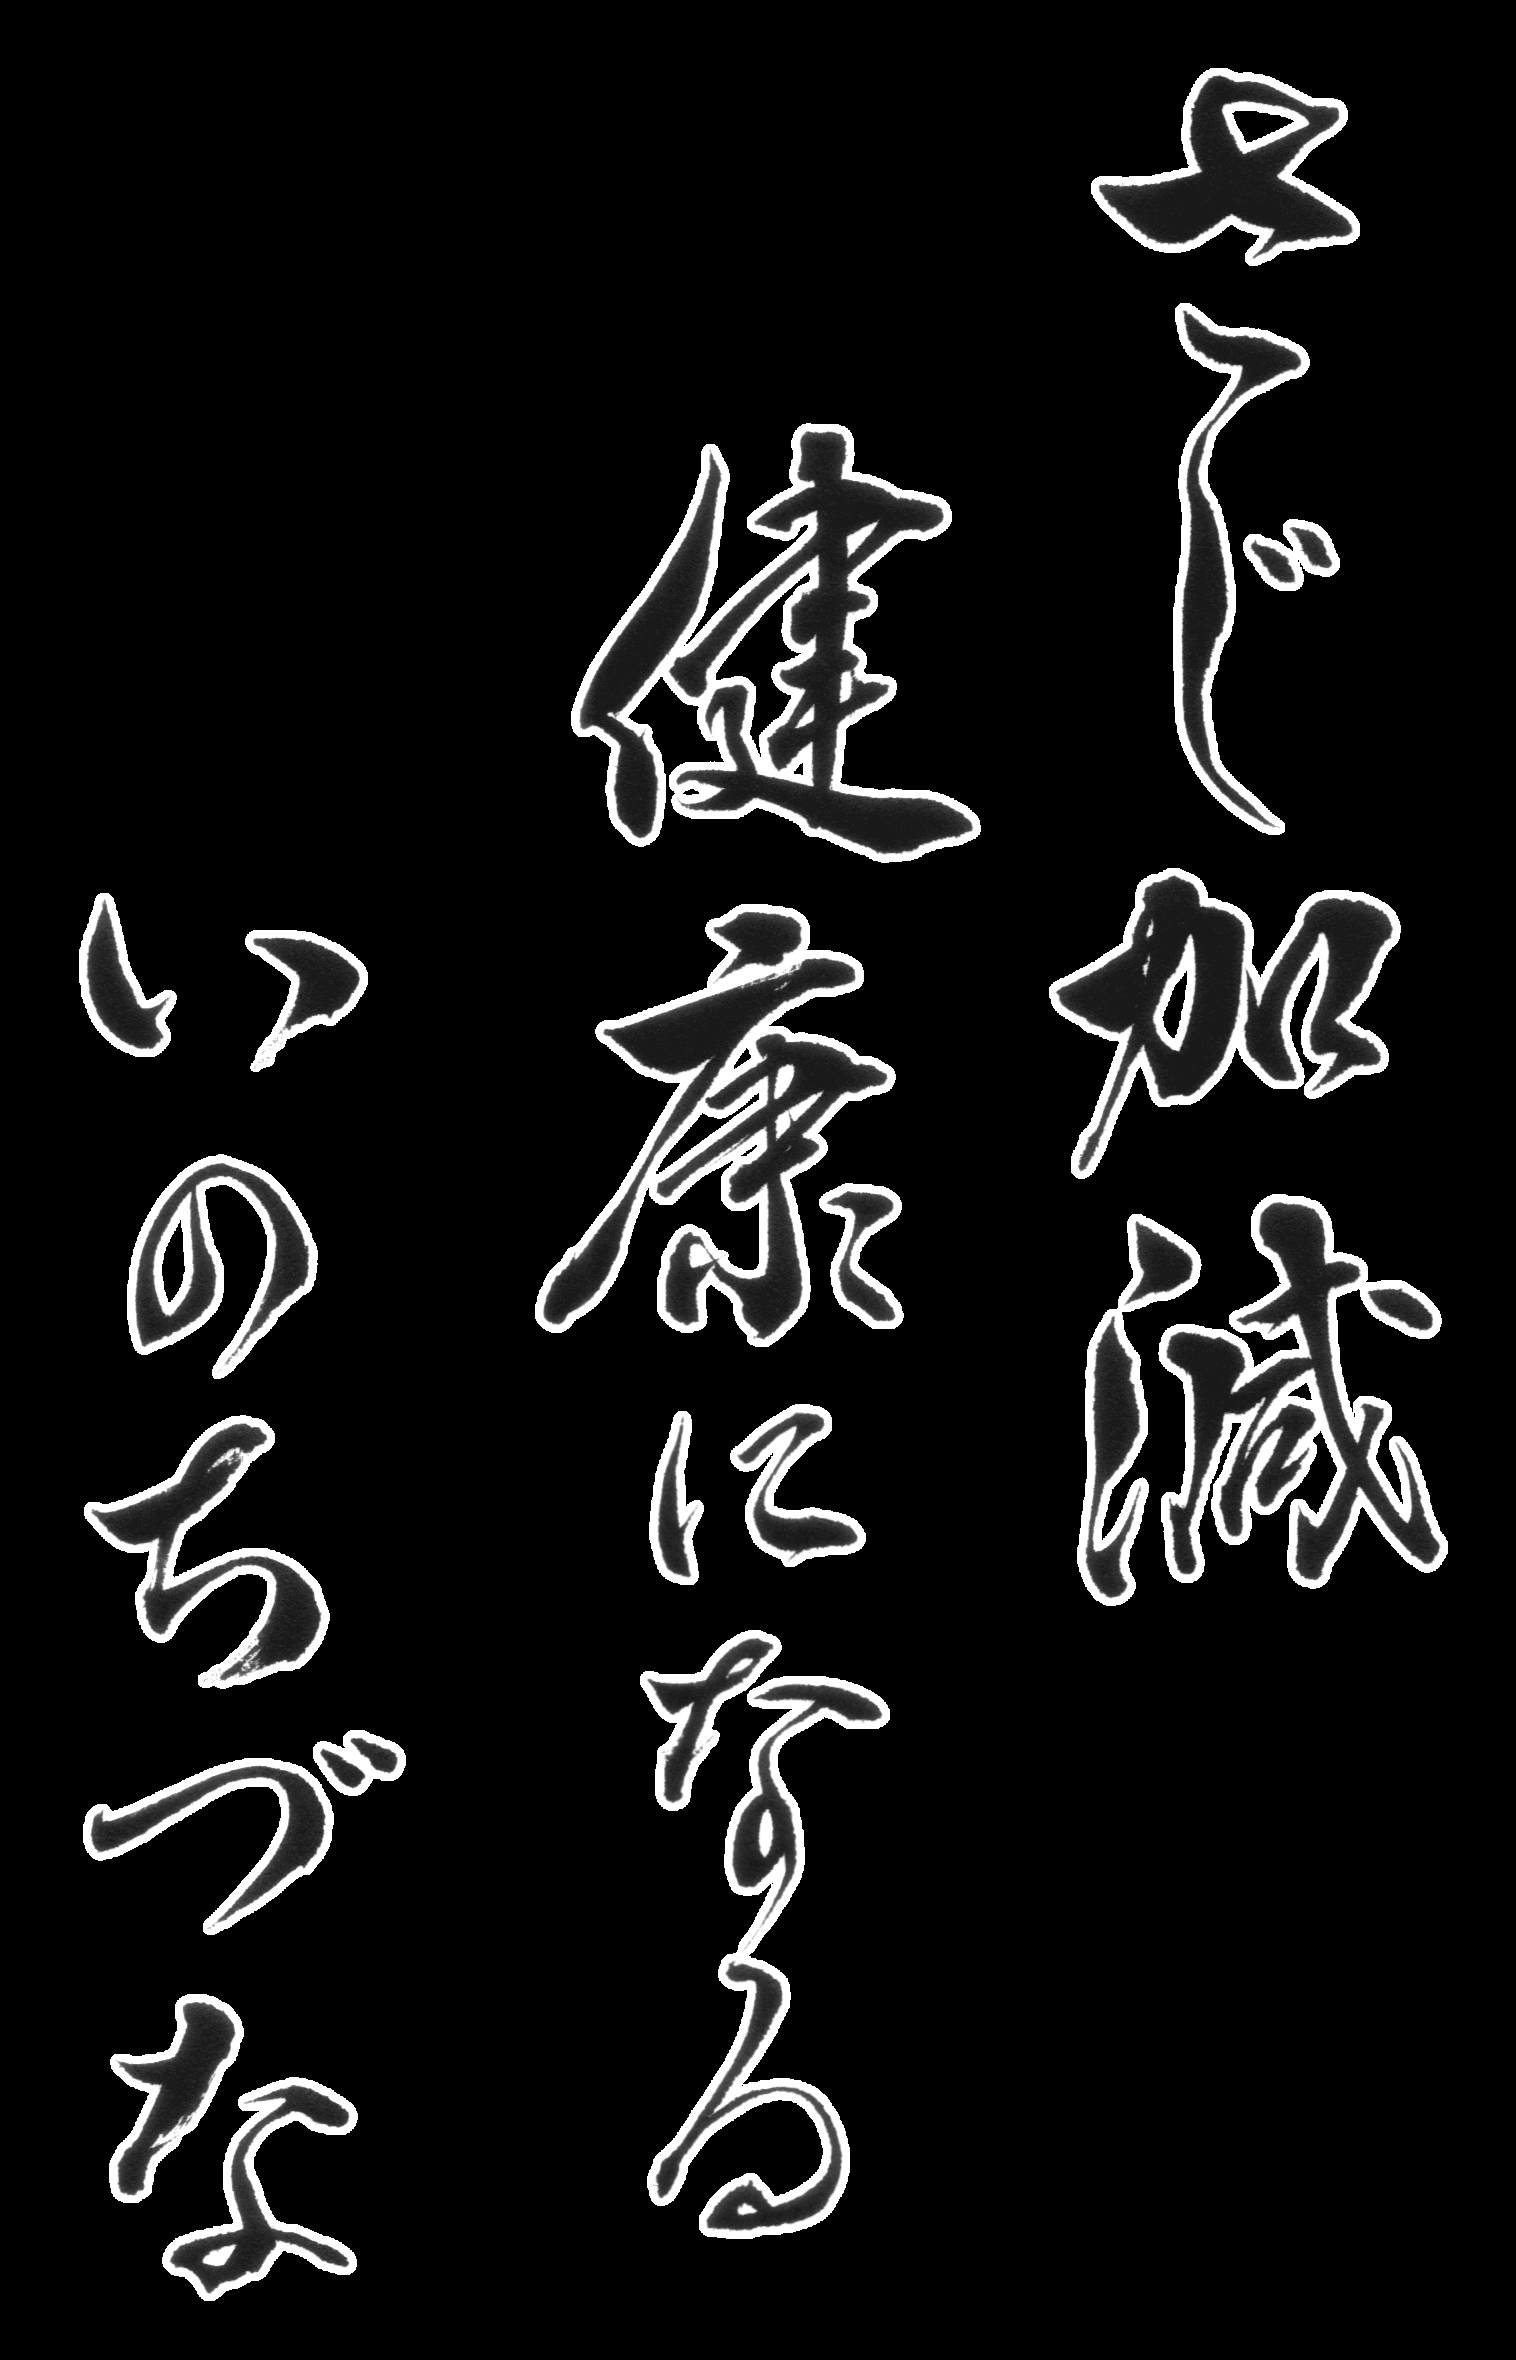 さじ加減
健康になる
いのちづな